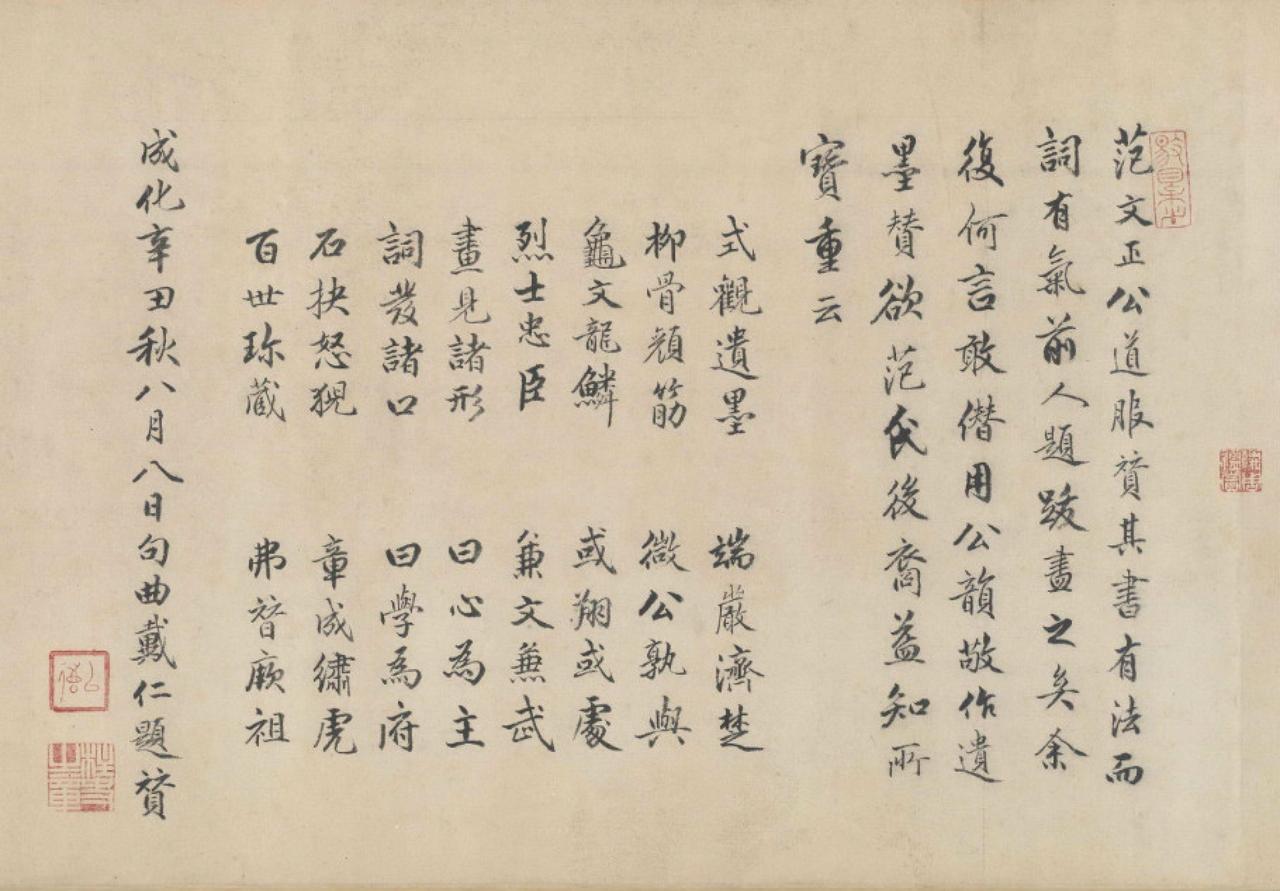 范文正公道服贊其書有法而
詞有氣前人題跋盡之矣余
復何言敢僣用公韻敬作遺
墨贊欲范氏後裔益知所
寶重云
式觀遺墨 端嚴濟楚
柳骨顔筋 微公孰與
龜文龍鱗 或翔或處
烈士忠臣 兼文兼武
畫見諸形 曰心為主
詞發諸口 曰學為府
石抉怒猊 章成繡虎
百世珎藏 弗替厥祖
成化辛丑秋八月八日句曲戴仁題贊